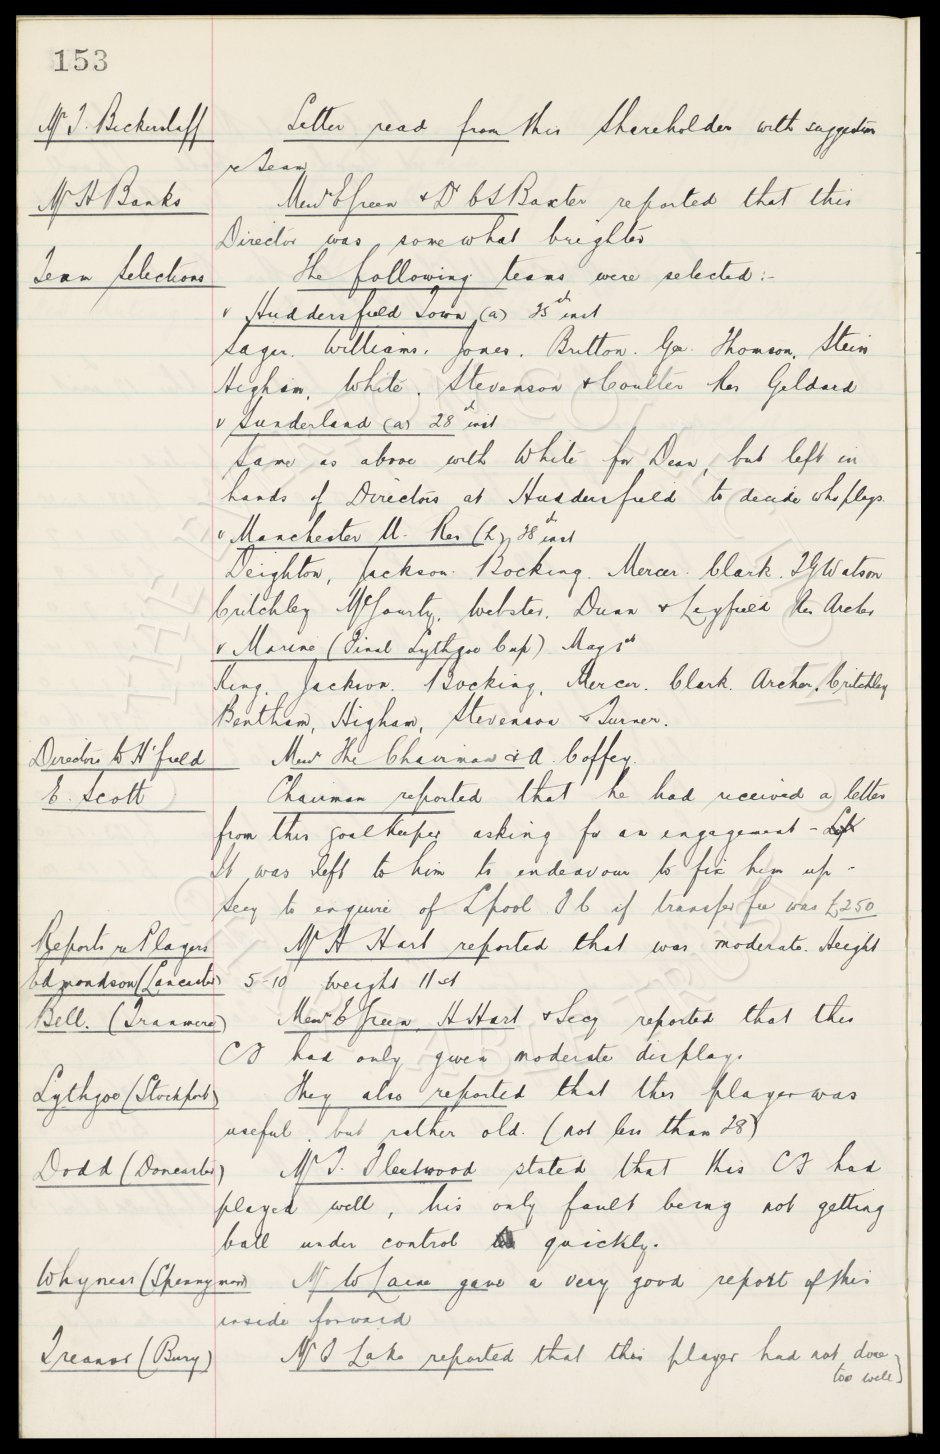 153
Mr T. Bickerstaff Letter read from this Shareholder with suggestion
re Team
Mr H Banks Messrs E Green & Dr C S Baxter reported that this
Director was somewhat brighter
Team Selections The following teams were selected:-
v Huddersfield Town (a) 25th inst
Sagar. Williams. Jones. Britton. Gee. Thomson. Stein
Higham, White. Stevenson & Coulter Res Geldard
v Sunderland (a) 28th inst
Same as above with White for Dean, but left in
hands of Directors at Huddersfield to decide who plays.
v Manchester U. Res (h) 28th inst
Deighton, Jackson. Bocking. Mercer. Clark. T G Watson
Critchley McGourty, Webster, Dunn & Leyfield Res Archer
v Marine (Final Lythgoe Cup) May 1st
King. Jackson. Bocking, Mercer. Clark. Archer, Critchley
Bentham, Higham, Stevenson & Turner.
Directors to H'field Messrs The Chairman & A. Coffey.
E. Scott Chairman reported that he had received a letter
from this goalkeeper asking for an engagement -
It was left to him to endeavour to fix him up -
Secy to enquire of Lpool F C if transfer fee was £250
Reports re Players Mr H Hart reported that was moderate. Height
Edmondson (Lancaster) 5-10 Weight 11 st
Bell. (Tranmere) Messrs E Green, H Hart & Secy reported that this
C F had only given moderate display.
Lythgoe (Stockport) They also reported that this player was
useful, but rather old. (not less than 28)
Dodd (Doncaster) Mr T. Fleetwood stated that this C F had
played well, his only fault being not getting
ball under control quickly.
Whyness (Spennymoor) Mr W Laine gave a very good report of this
inside forward
Treanor (Bury) Mr J Lake reported that this player had not done
too well